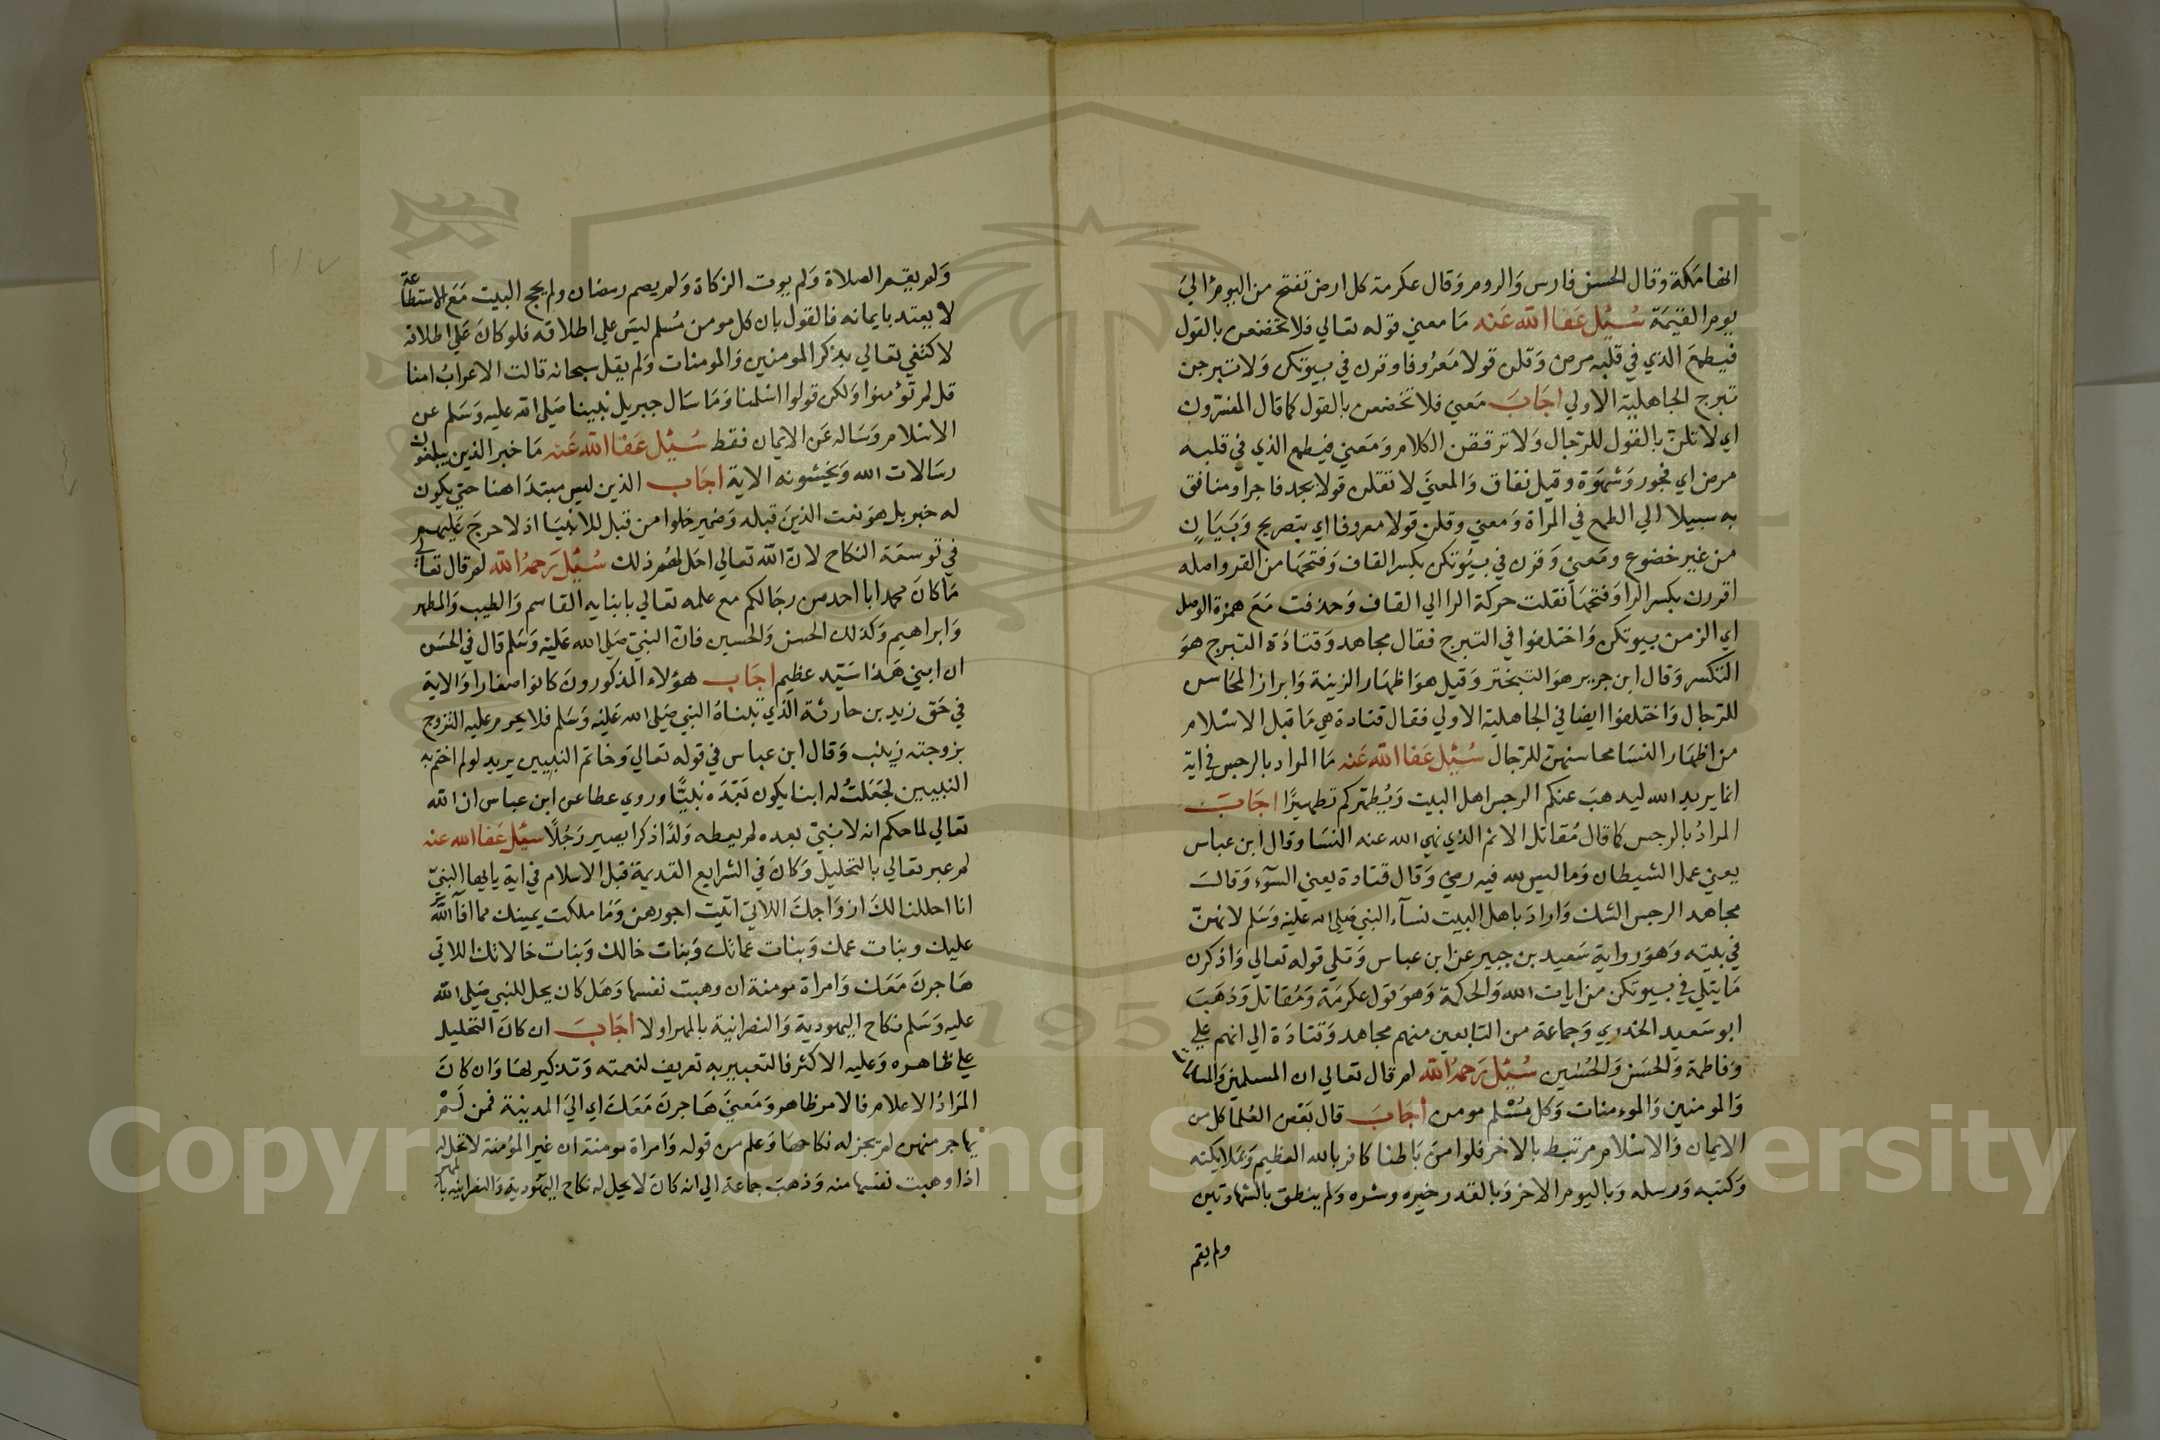 انها مكة وقال الحسن فارس والروم وقال عكرمة كل ارض تفتح من اليوم الي
يوم القيمة سئل عفا الله عنه ما معني قوله تعالي فلا تخضعن بالقول
فيطمع الذي في قلبه مرض وقلن قولا معروفا وقرن في بيوتكن ولا تبرجن
تبرج الجاهلية الاولي اجاب معني فلا تخضعن بالقول كما قال المفسرون
اي لا تلن بالقول للرجال ولا ترققن الكلام ومعني فيطمع الذي في قلبه
مرض اي فجور وشهوة وقيل نفاق والمعني لا تقلن قولا يجد فاجر او منافق
به سبيلا الي الطمع في المراة ومعني وقلن قولا معروفا اي بتصريح وبيان
من غير خضوع ومعني وقرن في بيوتكن بكسر القاف وفتحها من القر واصله
اقررن بكسر الرا وفتحها نقلت حركة الرا الي القاف وحذفت مع همزة الوصل
اي الزمن بيوتكن واختلفوا في التبرج فقال مجاهد وقتادة التبرج هو
التكسر وقال ابن جرير هو التبختر وقيل هو اظهار الزينة وابراز المحاسن
للرجال واختلفوا ايضا في الجاهلية الاولي فقال قتادة هي ما قبل الاسلام
من اظهار النسا محاسنهن للرجال سئل عفا الله عنه ما المراد بالرجس في اية
انما يريد الله ليدهب عنكم الرجس اهل البيت ويطهركم تطهيرا اجاب
المراد بالرجس كما قال مقاتل الاثم الذي نهي الله عنه النسا وقال ابن عباس
يعني عمل الشيطان وما ليس لله فيه رضي وقال قتادة يعني السوء وقالت
مجاهد الرجس الشك واراد باهل البيت نساء النبي صلي الله عليه وسلم لانهن
في بيته وهو رواية سعيد بن جبير عن ابن عباس وتلي قوله تعالي واذكرن
ما يتلي في بيوتكن من ايات الله والحكمة وهو قول عكرمة ومقاتل وذهب
ابو سعيد الخدري وجماعة من التابعين منهم مجاهد وقتادة الي انهم علي
وفاطمة والحسن والحسين سئل رحمه الله لم قال تعالي ان المسلمين والمسلمات
والمومنين والمومنات وكل مسلم مومن اجاب قال بعض العلما كل من
الايمان والاسلام مرتبط بالاخر فلو امن باطنا كافر بالله العظيم وملايكته
وكتبه ورسله وباليوم الاخر وبالقدر خيره وشره ولم ينطق بالشهادتين
ولم يقم
ولم يقم الصلاة ولم يوت الزكاة ولم يصم رمضان ولم يحج البيت مع الاستطاعة
لا يعتد بايمانه فالقول بان كل مومن مسلم ليس علي اطلاقه فلو كان علي اطلاقه
لاكتفي تعالي بذكر المومنين والمومنات ولم يقل سبحانه قالت الاعراب امنا
قل لم تؤمنوا ولكن قولوا اسلمنا وما سال جبريل نبينا صلي الله عليه وسلم عن
الاسلام وساله عن الايمان فقط سئل عفا الله عنه ما خبر الذين يبلغون
رسالات الله ويخشونه الاية اجاب الذين ليس مبتدا هنا حتي يكون
له خبر بل هو نعت الذين قبله وضمير خلوا من قبل للانبيا اذ لا حرج عليهم
في توسعة النكاح لان الله تعالي احل لهم ذلك سئل رحمه الله لم قال تعالي
ما كان محمد ابا احد من رجالكم مع علمه تعالي بابنايه القاسم والطيب والمطهر
وابراهيم وكذلك الحسن والحسين فان النبي صلي الله عليه وسلم قال في الحسن
ان ابني هذا سيد عظيم اجاب هؤلاء المذكورون كانوا صغارا والاية
في حق زيد بن حارثة الذي تبناه النبي صلي الله عليه وسلم فلا يحرم عليه التزوج
بزوجته زينب وقال ابن عباس في قوله تعالي وخاتم النبيين يريد لو لم اختم به
النبيين لجعلت له ابنا يكون بعده نبيا وروي عطا عن ابن عباس ان الله
تعالي لما حكم انه لا نبي بعده لم يعطه ولدا ذكرا يصير رجلا سئل عفا الله عنه
لم عبر تعالي بالتحليل وكان في الشرايع القديمة قبل الاسلام في اية يايها النبي
انا احللنا لك ازواجك اللاتي اتيت اجورهن وما ملكت يمينك مما افاء الله
عليك وبنات عمك وبنات عماتك وبنات خالك وبنات خالاتك اللاتي
هاجرن معك وامراة مومنة ان وهبت نفسها وهل كان يحل للنبي صلي الله
عليه وسلم نكاح اليهودية والنصرانية بالمهر اولا اجاب ان كان التحليل
علي ظاهره وعليه الاكثر فالتعبير به تعريف لنعمته وتذكير لها وان كان
المراد الاعلام فالامر ظاهر ومعني هاجرن معك اي الي المدينة فمن لم
يهاجر منهن لم يجز له نكاحها وعلم من قوله وامراة مومنة ان غير المؤمنة لا تحل له
اذا وهبت نفسها منه وذهب جماعة الي انه كان لا يحل له نكاح اليهودية والنصرانية بالمهر
Copyright © King Saud University
1957